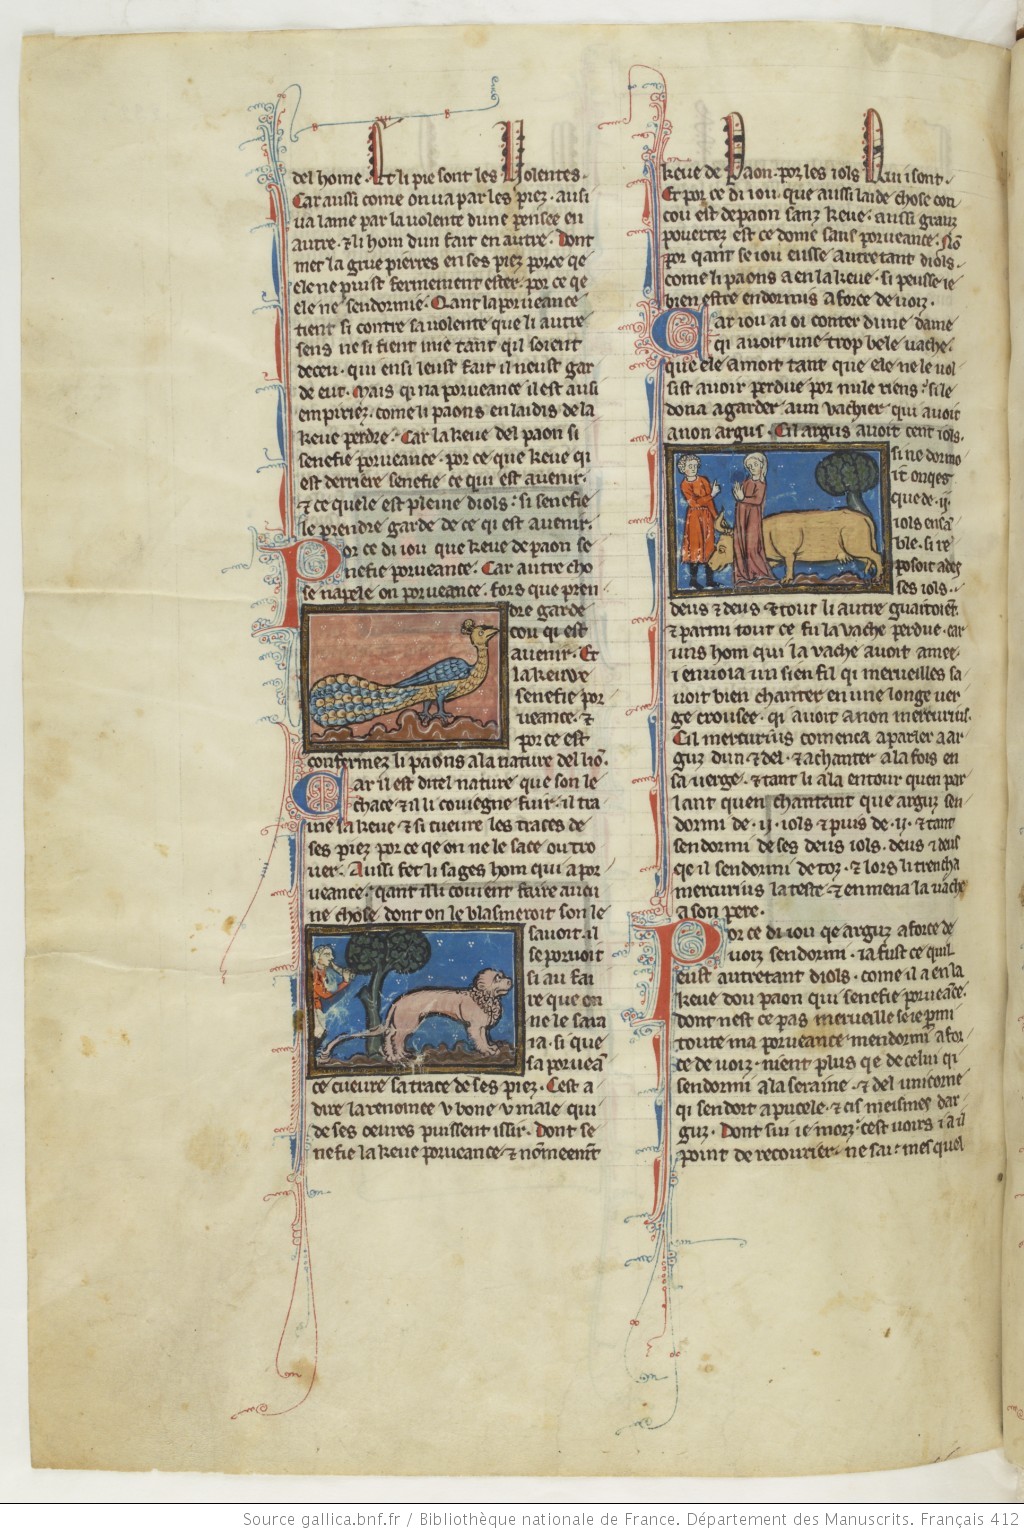 del home. Et li pie sont les Volentes.
Car aussi come on va par les piez. ausi
va lame par la volente dune pensee en
autre. ⁊ li hom dun fait en autre. Dont
met la grue pierres en ses piez porce qe
ele ne puist fermement ester. por ce qe
ele ne sendormie. Qant la porueance
tient si contre sa volente que li autre
sens ne si fient mie tant qil soient
deceu. qui ensi leust fait il neust gar
de eut. Mais qi na porueance il est ausi
empiriez. come li paons en laidis de la
keue perdre. Car la keue del paon si
senefie porueance. por ce que keue qi
est derriere senefie ce qui est auenir.
⁊ ce quele est pleine diols. si senefie
le prendre garde de ce qi est auenir.
Por ce di iou que keue de paon se
nefie porueance. Car autre cho
se napele on porueance. fors que pren
dre garde
cou qi est
auenir. Et
la keuve
senefie por
ueance. ⁊
por ce est
confermez li paons a la nature del lion̄.
Car il est ditel nature que son le
chace ⁊ il li couiegne fuir. il tra
ine sa keue ⁊ si cueure les traces de
ses piez por ce qe on ne le sace ou tro
uer. Aussi fet li sages hom qui a por
ueance. qant illi couient faire aucu
ne chose dont on le blasmeroit son le
sauoit. il
se poruoit
si au fai
re que on
ne le sara
ia. si que
sa porueā
ce cueure sa trace de ses piez. Cest a
dire la renomee v bone v male qui
de ses oeures puissent issir. Dont se
nefie la keue porueance. ⁊ nōmeemt̄
keue de Paon. por les iols Qui i sont.
Et por ce di iou. que aussi laide chose con
cou est de paon sanz keue. aussi granz
pouertez est ce dome sans porueance. Nō
por qant se iou eusse autretant diols.
come li paons a en la keue. si peusse ie
bien estre endormis a force de uoiz.
Car iou ai oi conter dune dame
qi auoit une trop bele uache.
que ele amoit tant que ele ne le vol
sist auoir perdue por nule riens. si le
dona a garder a un vachier qui auoit
a non argus. Cil argus auoit cent iols.
si ne dormo
it onqes
que de .ii.
iols ensā
ble. si re
posoit ades
ses iols.
deus ⁊ deus ⁊ tout li autre guaitoiēt.
⁊ parmi tout ce fu la vache perdue. car
uns hom qui la vache auoit amee.
i enuoia un sien fil qi merueilles sa
uoit bien chanter en une longe ver
ge crousee. qi auoit a non mercurius.
Cil mercurius comenca a parler a ar
guz dun ⁊ del. ⁊ a chanter a la fois en
sa uerge. ⁊ tant li ala entour quen par
lant quen chantant que arguz sen
dormi de .ii. iols ⁊ puis de .ii. ⁊ tant
sendormi de ses deus iols. deus ⁊ deus
qe il sendormi de toz. ⁊ lors li trencha
mercurius la teste ⁊ en mena la vache
a son pere.
Por ce di iou qe arguz a force de
uoiz sendormi. ia fust ce quil
eust autretant diols. come il a en la
keue dou paon qui senefie porueāce.
dont nest ce pas merueille se ie parmi
toute ma porueance mendormi a for
ce de uoiz. nient plus qe de celui qi
sendormi a la seraine. ⁊ del unicorne
qi sendort a pucele. ⁊ cis meismes dar
guz. Dont sui ie morz. cest uoirs i a il
point de recourier. ne sai. mes quel
Source gallica.bnf.fr / Bibliothèque nationale de France. Département des Manuscrits. Français 412